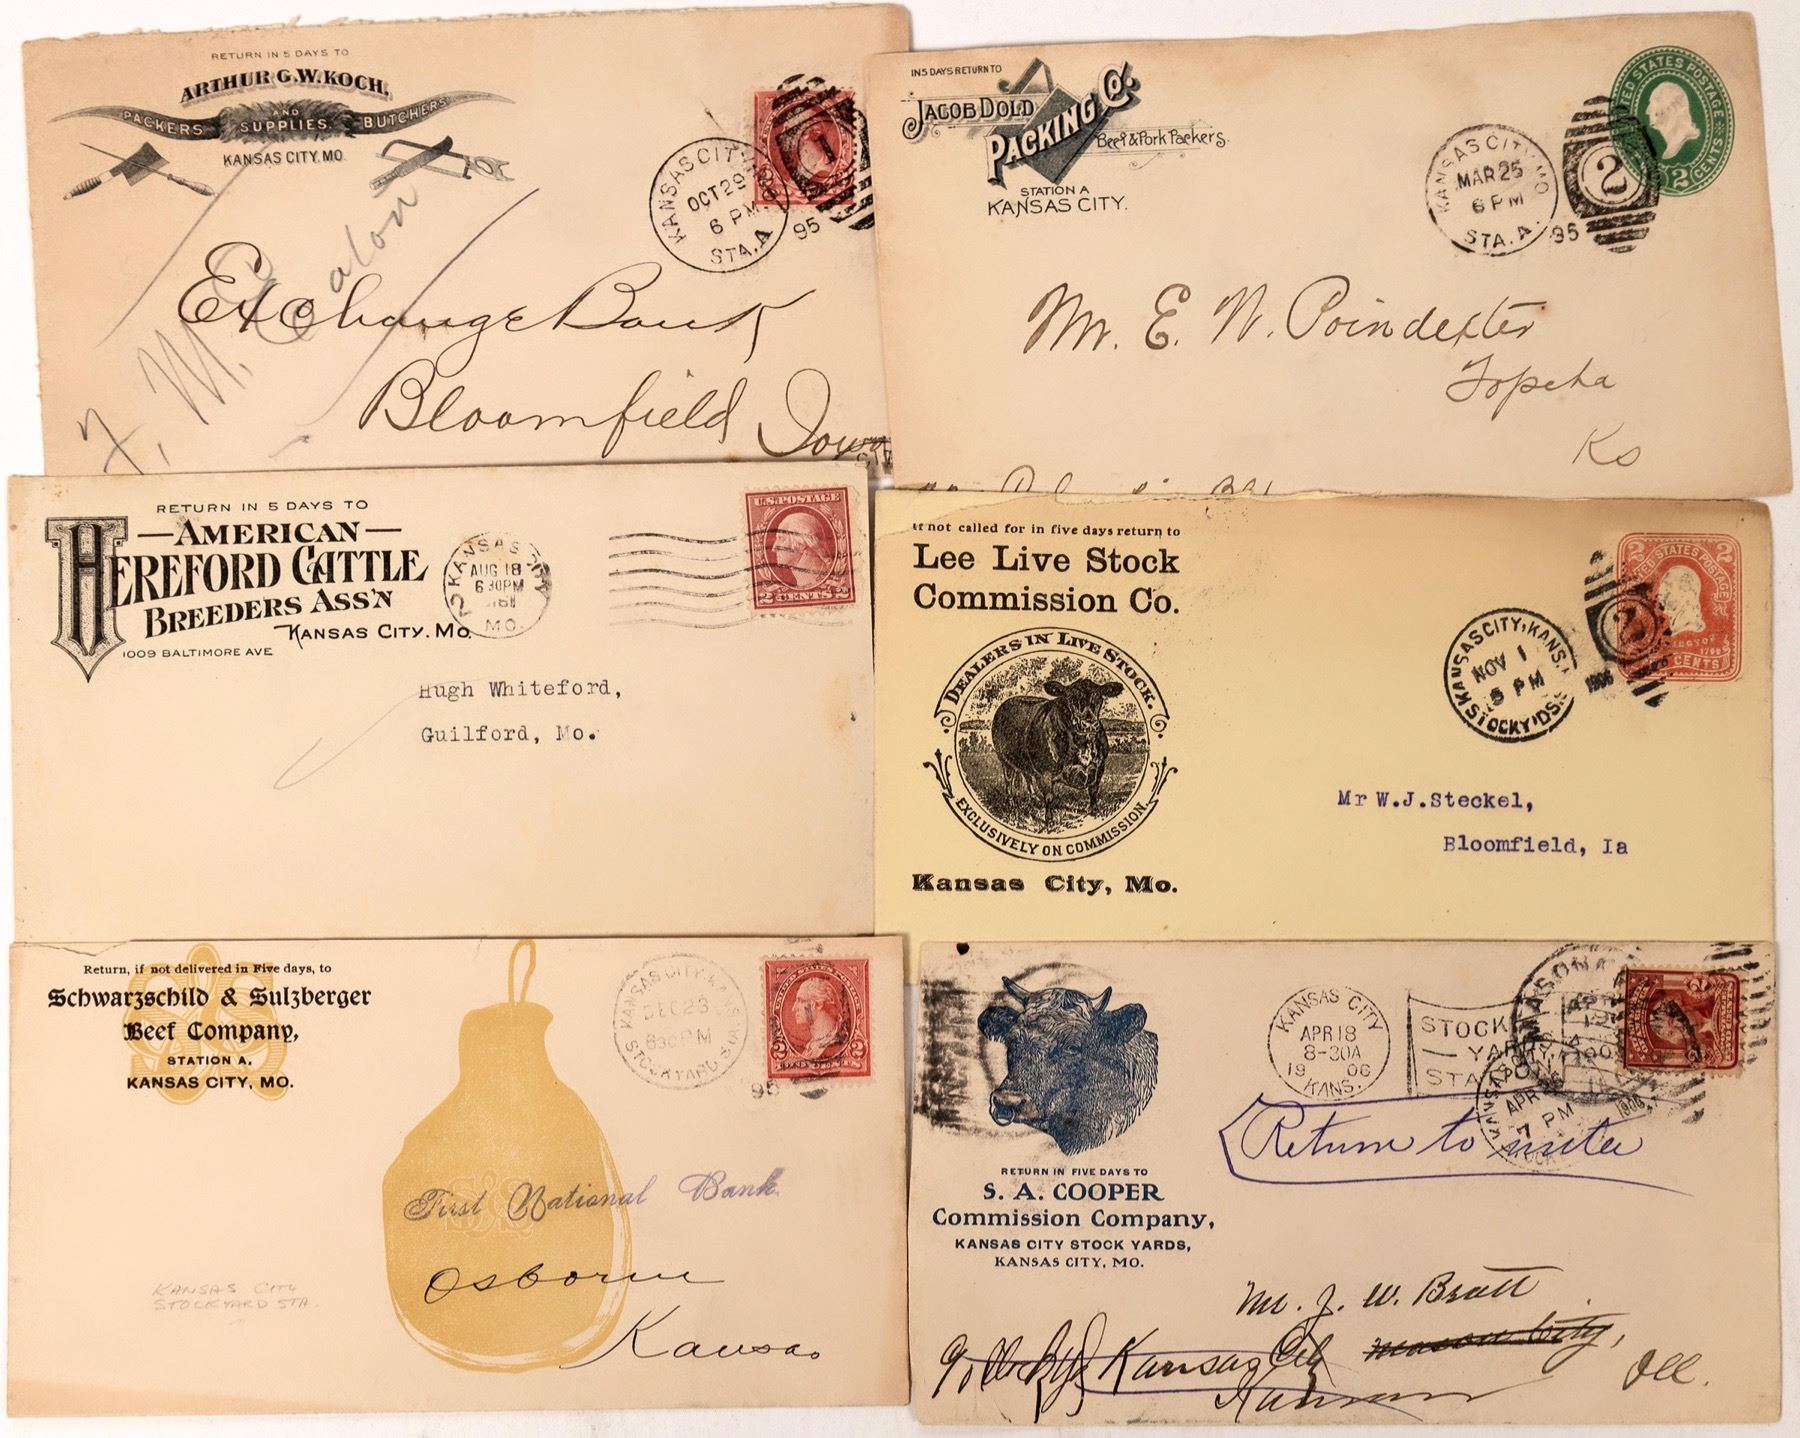 RETURN IN 5 DAYS TO
ARTHUR G.W. KOCH,
PACKERS AND BUTCHERS
SUPPLIES.
KANSAS CITY, MO.
KANSAS CITY, MO.
OCT 29
6 PM
STA. A
95
1
Exchange Bank
Bloomfield
Iowa
F. M. Eaton
IN 5 DAYS RETURN TO
JACOB DOLD
PACKING CO.
Beef & Pork Packers.
STATION A
KANSAS CITY.
KANSAS CITY, MO
MAR 25
6 PM
STA. A.
95
2
UNITED STATES POSTAGE
2 CENTS
Mr. E. W. Poindexter
Topeka
Ks
RETURN IN 5 DAYS TO
—AMERICAN—
HEREFORD CATTLE
BREEDERS ASS'N
KANSAS CITY. MO.
1009 BALTIMORE AVE
KANSAS CITY
AUG 18
6 30PM
MO.
U.S. POSTAGE
2 CENTS 2
Hugh Whiteford,
Guilford, Mo.
If not called for in five days return to
Lee Live Stock
Commission Co.
DEALERS IN LIVE STOCK.
EXCLUSIVELY ON COMMISSION.
Kansas City, Mo.
KANSAS CITY, KANS.
NOV 1
5 PM
STOCKYDS.
1906
2
2 UNITED STATES POSTAGE 2
CENTS
Mr W.J.Steckel,
Bloomfield, Ia
Return, if not delivered in Five days, to
Schwarzschild & Sulzberger
Beef Company,
STATION A.
KANSAS CITY, MO.
S&S
KANSAS CITY, KANS.
DEC 23
630 PM
STOCKYARD. STA.
95
2 CENTS 2
S&S
First National Bank
Osborne
Kansas
KANSAS CITY
STOCKYARD STA.
RETURN IN FIVE DAYS TO
S. A. COOPER
Commission Company,
KANSAS CITY STOCK YARDS,
KANSAS CITY, MO.
KANSAS CITY
APR 18
8-30A
19 06
KANS.
STOCK
YARDS
STATION
APR
7 PM
1906
Return to writer
Mr. J. W. Bratt
Mason City,
Ill.
Kansas City
Kansas